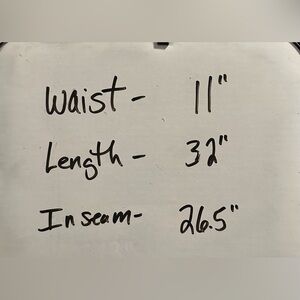 Waist - 11"
Length - 32"
Inseam- 26.5"